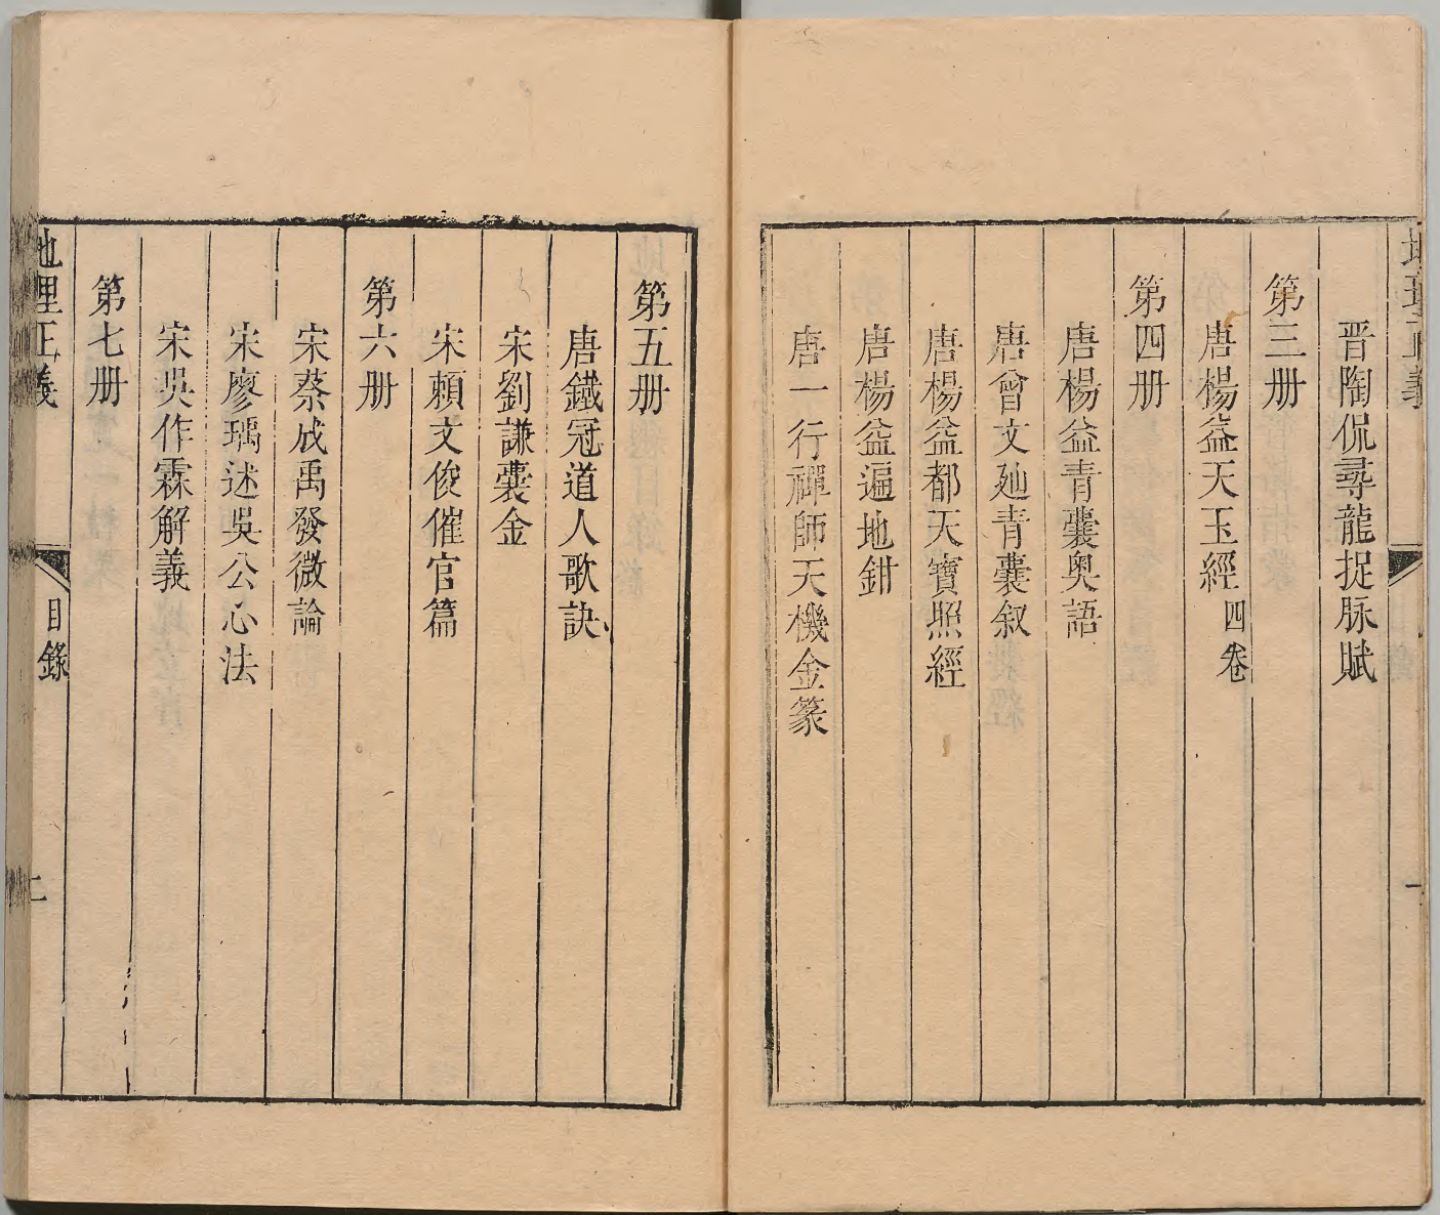 晋陶侃尋龍捉脉賦
第三册
唐楊益天玉經四卷
第四册
唐楊益青囊奥語
唐曾文𨒂青囊叙
唐楊益都天寶照經
唐楊益遍地鉗
唐一行禪師天機金篆
第五册
唐鐵冠道人歌訣
宋劉謙囊金
宋賴文俊催官篇
第六册
宋蔡成禹發微論
宋廖瑀述吳公心法
宋吳作霖解義
第七册
地理正義
目錄
二